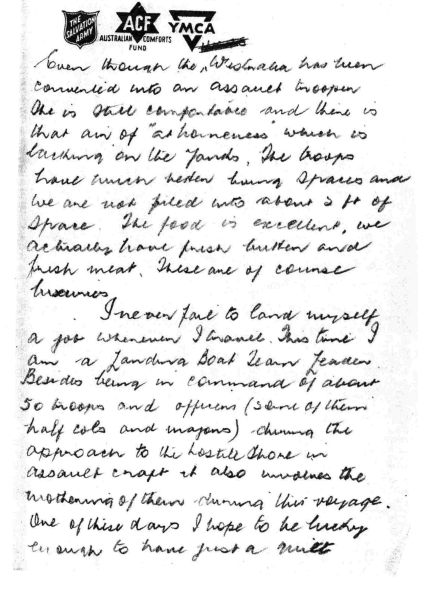 THE SALVATION ARMY
ACF
AUSTRALIAN COMFORTS FUND
YMCA
Even though the "Westralia has been
converted into an assault trooper
she is still comfortable and there is
that air of "at homeness" which is
lacking on the Yanks. The troops
have much better living spaces and
we are not piled into about 2 ft of
space. The food is excellent, we
actually have fresh butter and
fresh meat. These are of course
luxuries.
I never fail to land myself
a job whenever I travel. This time I
am a Landing Boat Team Leader.
Besides being in command of about
50 troops and officers (some of them
half cols and majors) during the
approach to the hostile shore in
assault craft it also involves the
mothering of them during this voyage.
One of these days I hope to be lucky
enough to have just a quiet